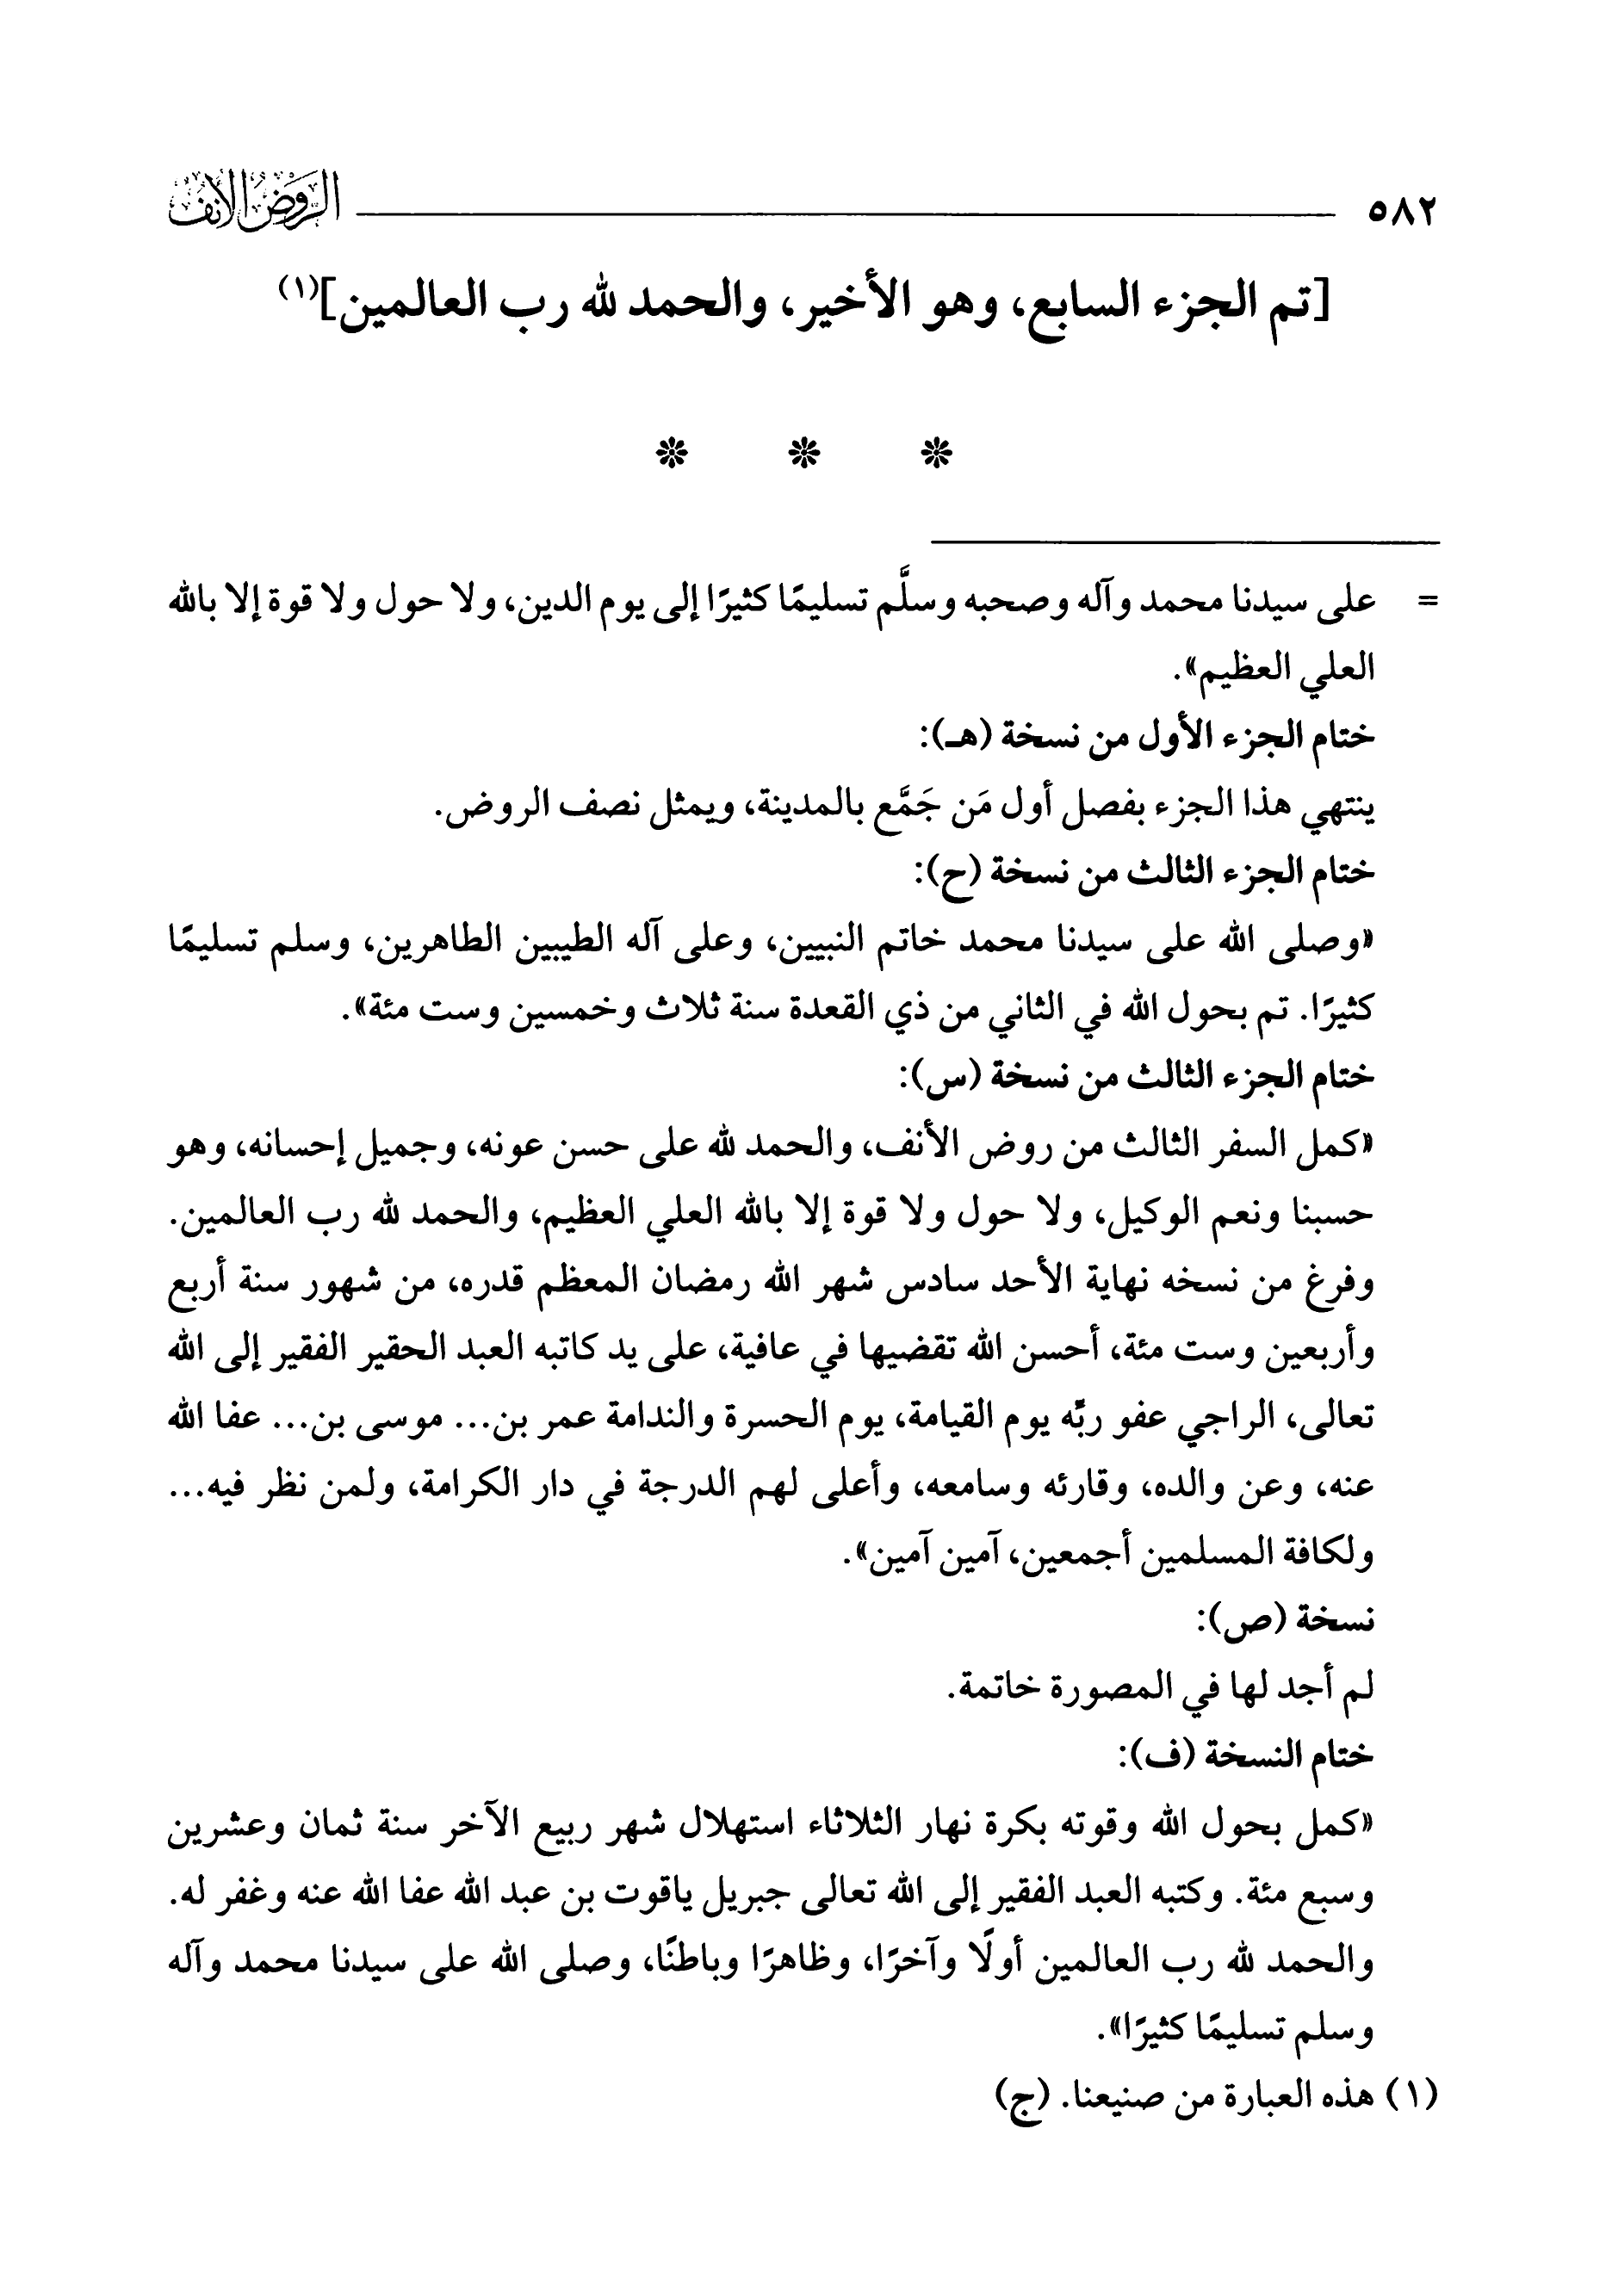 ٥٨٢ الروض الأنف
[تم الجزء السابع، وهو الأخير، والحمد لله رب العالمين](١)
= على سيدنا محمد وآله وصحبه وسلَّم تسليمًا كثيرًا إلى يوم الدين، ولا حول ولا قوة إلا بالله
العلي العظيم».
ختام الجزء الأول من نسخة (هـ):
ينتهي هذا الجزء بفصل أول مَن جَمَّع بالمدينة، ويمثل نصف الروض.
ختام الجزء الثالث من نسخة (ح):
«وصلى الله على سيدنا محمد خاتم النبيين، وعلى آله الطيبين الطاهرين، وسلم تسليمًا
كثيرًا. تم بحول الله في الثاني من ذي القعدة سنة ثلاث وخمسين وست مئة».
ختام الجزء الثالث من نسخة (س):
«كمل السفر الثالث من روض الأنف، والحمد لله على حسن عونه، وجميل إحسانه، وهو
حسبنا ونعم الوكيل، ولا حول ولا قوة إلا بالله العلي العظيم، والحمد لله رب العالمين.
وفرغ من نسخه نهاية الأحد سادس شهر الله رمضان المعظم قدره، من شهور سنة أربع
وأربعين وست مئة، أحسن الله تقضيها في عافية، على يد كاتبه العبد الحقير الفقير إلى الله
تعالى، الراجي عفو ربِّه يوم القيامة، يوم الحسرة والندامة عمر بن... موسى بن... عفا الله
عنه، وعن والده، وقارئه وسامعه، وأعلى لهم الدرجة في دار الكرامة، ولمن نظر فيه...
ولكافة المسلمين أجمعين، آمين آمين».
نسخة (ص):
لم أجد لها في المصورة خاتمة.
ختام النسخة (ف):
«كمل بحول الله وقوته بكرة نهار الثلاثاء استهلال شهر ربيع الآخر سنة ثمان وعشرين
وسبع مئة. وكتبه العبد الفقير إلى الله تعالى جبريل ياقوت بن عبد الله عفا الله عنه وغفر له.
والحمد لله رب العالمين أولًا وآخرًا، وظاهرًا وباطنًا، وصلى الله على سيدنا محمد وآله
وسلم تسليمًا كثيرًا».
(١) هذه العبارة من صنيعنا. (ج)